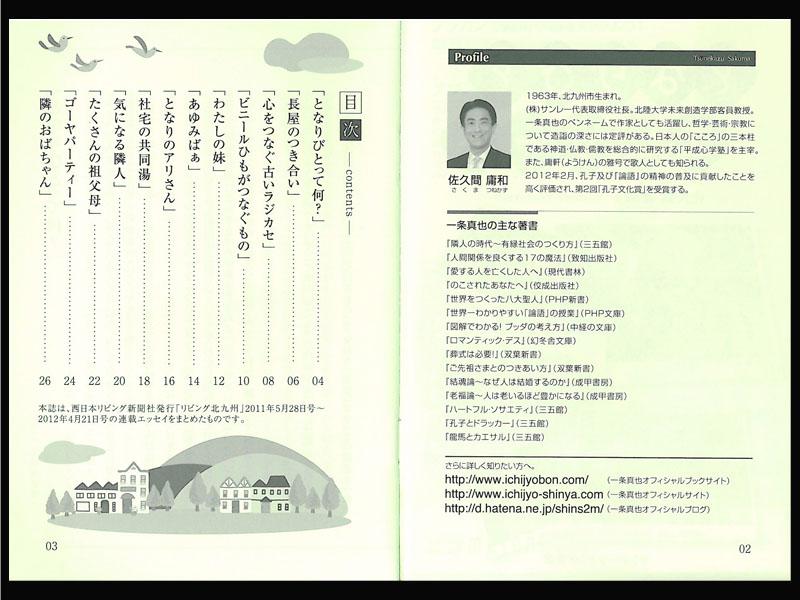 Profile
Tsunekazu Sakuma
1963年、北九州市生まれ。
(株)サンレー代表取締役社長。北陸大学未来創造学部客員教授。
一条真也のペンネームで作家としても活躍し、哲学・芸術・宗教に
ついて造詣の深さには定評がある。日本人の「こころ」の三本柱
である神道・仏教・儒教を総合的に研究する「平成心学塾」を主宰。
また、庸軒(ようけん)の雅号で歌人としても知られる。
2012年2月、孔子及び「論語」の精神の普及に貢献したことを
高く評価され、第2回「孔子文化賞」を受賞する。
佐久間 庸和
さくま つねかず
一条真也の主な著書
「隣人の時代〜有縁社会のつくり方」(三五館)
「人間関係を良くする17の魔法」(致知出版社)
「愛する人を亡くした人へ」(現代書林)
「のこされたあなたへ」(佼成出版社)
「世界をつくった八大聖人」(PHP新書)
「世界一わかりやすい「論語」の授業」(PHP文庫)
「図解でわかる! ブッダの考え方」(中経の文庫)
「ロマンティック・デス」(幻冬舎文庫)
「葬式は必要!」(双葉新書)
「ご先祖さまとのつきあい方」(双葉新書)
「結魂論〜なぜ人は結婚するのか」(成甲書房)
「老福論〜人は老いるほど豊かになる」(成甲書房)
「ハートフル・ソサエティ」(三五館)
「孔子とドラッカー」(三五館)
「龍馬とカエサル」(三五館)
さらに詳しく知りたい方へ。
http://www.ichijyobon.com/ (一条真也オフィシャルブックサイト)
http://www.ichijyo-shinya.com (一条真也オフィシャルサイト)
http://d.hatena.ne.jp/shins2m/ (一条真也オフィシャルブログ)
02
目次 ― contents ―
「となりびとって何?」 04
「長屋のつき合い」 06
「心をつなぐ古いラジカセ」 08
「ビニールひもがつなぐもの」 10
「わたしの妹」 12
「あゆみばぁ」 14
「となりのアリさん」 16
「社宅の共同湯」 18
「気になる隣人」 20
「たくさんの祖父母」 22
「ゴーヤパーティー」 24
「隣のおばちゃん」 26
本誌は、西日本リビング新聞社発行「リビング北九州」2011年5月28日号〜
2012年4月21日号の連載エッセイをまとめたものです。
03